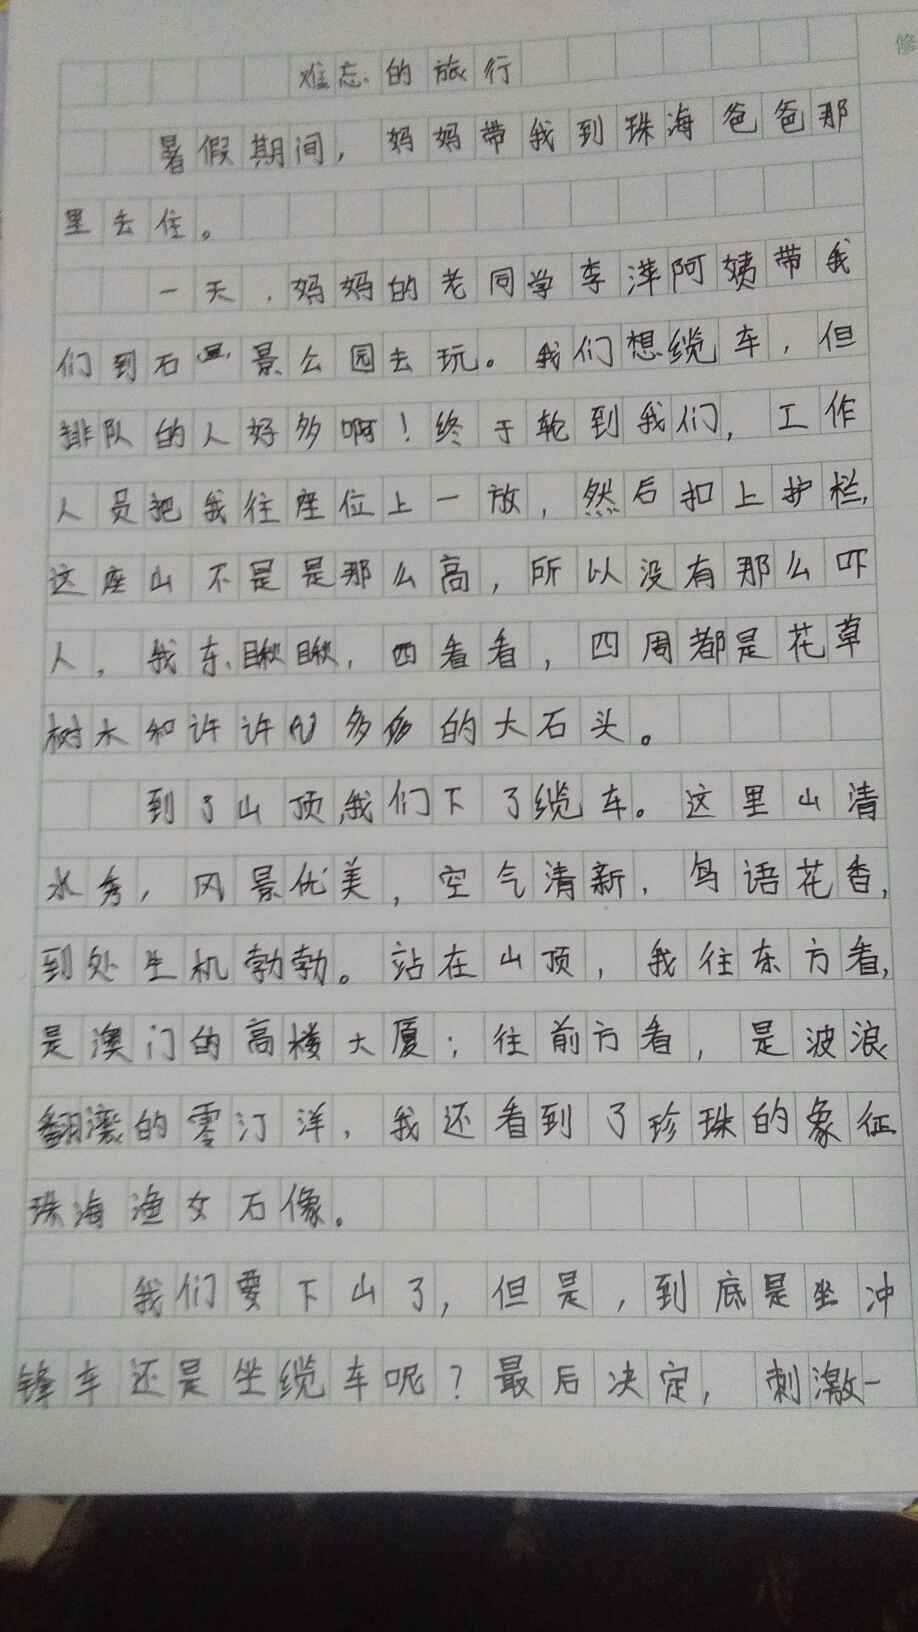 难忘的旅行
暑假期间，妈妈带我到珠海爸爸那
里去住。
一天，妈妈的老同学李萍阿姨带我
们到石景公园去玩。我们想缆车，但
排队的人好多啊！终于轮到我们，工作
人员把我往座位上一放，然后扣上护栏，
这座山不是是那么高，所以没有那么吓
人，我东瞅瞅，四看看，四周都是花草
树木和许许多多的大石头。
到了山顶，我们下了缆车。这里山清
水秀，风景优美，空气清新，鸟语花香，
到处生机勃勃。站在山顶，我往东方看，
是澳门的高楼大厦；往前方看，是波浪
翻滚的零汀洋，我还看到了珍珠的象征
珠海渔女石像。
我们要下山了，但是，到底是坐冲
锋车还是坐缆车呢？最后决定，刺激一
修